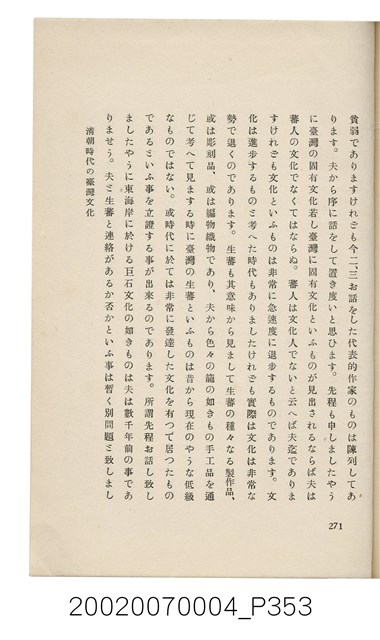 貧弱でありますけれども今二、三お話をした代表的作家のものは陳列してあ
ります。夫から序に話をして置き度いと思ひます。先程も申しましたやう
に臺灣の固有文化若し臺灣に固有文化といふものが見出されるならば夫は
蕃人の文化でなくてはならぬ。蕃人は文化人でないと云へば夫迄でありま
すけれども文化といふものは非常に急速度に退步するものであります。文
化は進步するものと考へた時代もありましたけれども實際は文化は非常な
勢で退くのであります。生蕃も其意味から見まして生蕃の種々なる製作品、
或は彫刻品、或は編物織物であり、夫から色々の籠の如きもの手工品を通
じて考へて見まする時に臺灣の生蕃といふものは昔から現在のやうな低級
なものではない。或時代に於ては非常に發達した文化を有つて居つたもの
であるといふ事を立證する事が出來るのであります。所謂先程お話し致し
ましたやうに東海岸に於ける巨石文化の如きものは夫は數千年前の事であ
りませう。夫と生蕃と連絡があるか否かといふ事は暫く別問題と致しまし
清朝時代の臺灣文化
271
20020070004_P353